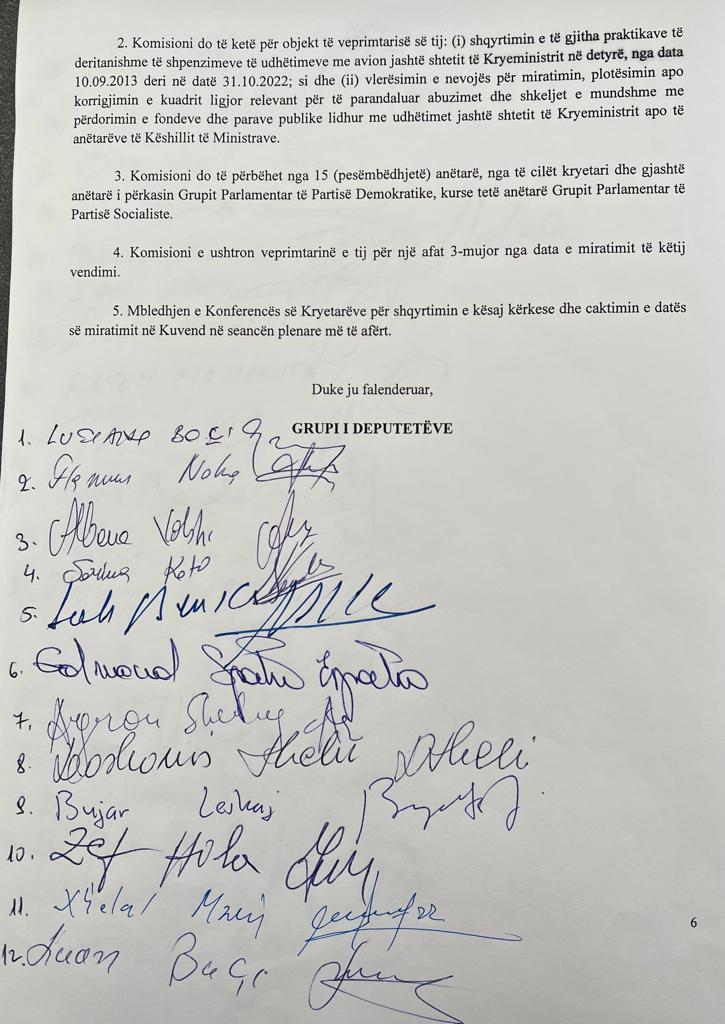 2. Komisioni do të ketë për objekt të veprimtarisë së tij: (i) shqyrtimin e të gjitha praktikave të
deritanishme të shpenzimeve të udhëtimeve me avion jashtë shtetit të Kryeministrit në detyrë, nga data
10.09.2013 deri në datë 31.10.2022; si dhe (ii) vlerësimin e nevojës për miratimin, plotësimin apo
korrigjimin e kuadrit ligjor relevant për të parandaluar abuzimet dhe shkeljet e mundshme me
përdorimin e fondeve dhe parave publike lidhur me udhëtimet jashtë shtetit të Kryeministrit apo të
anëtarëve të Këshillit të Ministrave.
3. Komisioni do të përbëhet nga 15 (pesëmbëdhjetë) anëtarë, nga të cilët kryetari dhe gjashtë
anëtarë i përkasin Grupit Parlamentar të Partisë Demokratike, kurse tetë anëtarë Grupit Parlamentar të
Partisë Socialiste.
4. Komisioni e ushtron veprimtarinë e tij për një afat 3-mujor nga data e miratimit të këtij
vendimi.
5. Mbledhjen e Konferencës së Kryetarëve për shqyrtimin e kësaj kërkese dhe caktimin e datës
së miratimit në Kuvend në seancën plenare më të afërt.
Duke ju falenderuar,
GRUPI I DEPUTETËVE
1. LUCIANO BOÇI
2. Flamur Noka
3. Albana Vokshi
4. Jorida
5.
6. Edmond Spaho
7. Agron Shehaj
8.
9. Bujar Leskaj
10. Zef Hila
11. Xhelal Mziu
12. Luan Baçi
6